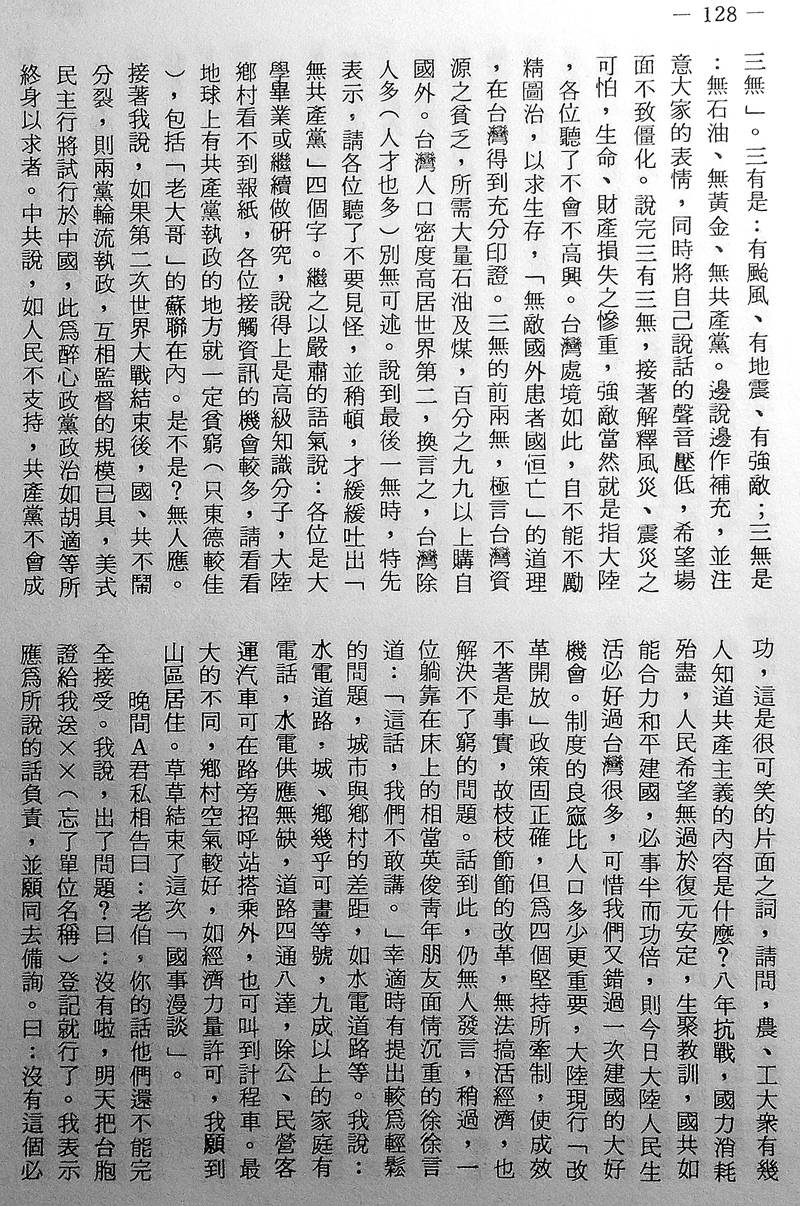 — 128 —
三無」。三有是：有颱風、有地震、有強敵；三無是
：無石油、無黃金、無共產黨。邊說邊作補充，並注
意大家的表情，同時將自己說話的聲音壓低，希望場
面不致僵化。說完三有三無，接著解釋風災、震災之
可怕，生命、財產損失之慘重，強敵當然就是指大陸
，各位聽了不會不高興。台灣處境如此，自不能不勵
精圖治，以求生存，「無敵國外患者國恒亡」的道理
，在台灣得到充分印證。三無的前兩無，極言台灣資
源之貧乏，所需大量石油及煤，百分之九九以上購自
國外。台灣人口密度高居世界第二，換言之，台灣除
人多（人才也多）別無可述。說到最後一無時，特先
表示，請各位聽了不要見怪，並稍頓，才緩緩吐出「
無共產黨」四個字。繼之以嚴肅的語氣說：各位是大
學畢業或繼續做研究，說得上是高級知識分子，大陸
鄉村看不到報紙，各位接觸資訊的機會較多，請看看
地球上有共產黨執政的地方就一定貧窮（只東德較佳
），包括「老大哥」的蘇聯在內。是不是？無人應。
接著我說，如果第二次世界大戰結束後，國、共不鬧
分裂，則兩黨輪流執政，互相監督的規模已具，美式
民主行將試行於中國，此爲醉心政黨政治如胡適等所
終身以求者。中共說，如人民不支持，共產黨不會成
功，這是很可笑的片面之詞，請問，農、工大衆有幾
人知道共產主義的內容是什麼？八年抗戰，國力消耗
殆盡，人民希望無過於復元安定，生聚教訓，國共如
能合力和平建國，必事半而功倍，則今日大陸人民生
活必好過台灣很多，可惜我們又錯過一次建國的大好
機會。制度的良窳比人口多少更重要，大陸現行「改
革開放」政策固正確，但爲四個堅持所牽制，使成效
不著是事實，故枝枝節節的改革，無法搞活經濟，也
解決不了窮的問題。話到此，仍無人發言，稍過，一
位躺靠在床上的相當英俊靑年朋友面情沉重的徐徐言
道：「這話，我們不敢講。」幸適時有提出較爲輕鬆
的問題，城市與鄉村的差距，如水電道路等。我說：
水電道路，城、鄉幾乎可畫等號，九成以上的家庭有
電話，水電供應無缺，道路四通八達，除公、民營客
運汽車可在路旁招呼站搭乘外，也可叫到計程車。最
大的不同，鄉村空氣較好，如經濟力量許可，我願到
山區居住。草草結束了這次「國事漫談」。
晚間A君私相告曰：老伯，你的話他們還不能完
全接受。我說，出了問題？曰：沒有啦，明天把台胞
證給我送××（忘了單位名稱）登記就行了。我表示
應爲所說的話負責，並願同去備詢。曰：沒有這個必